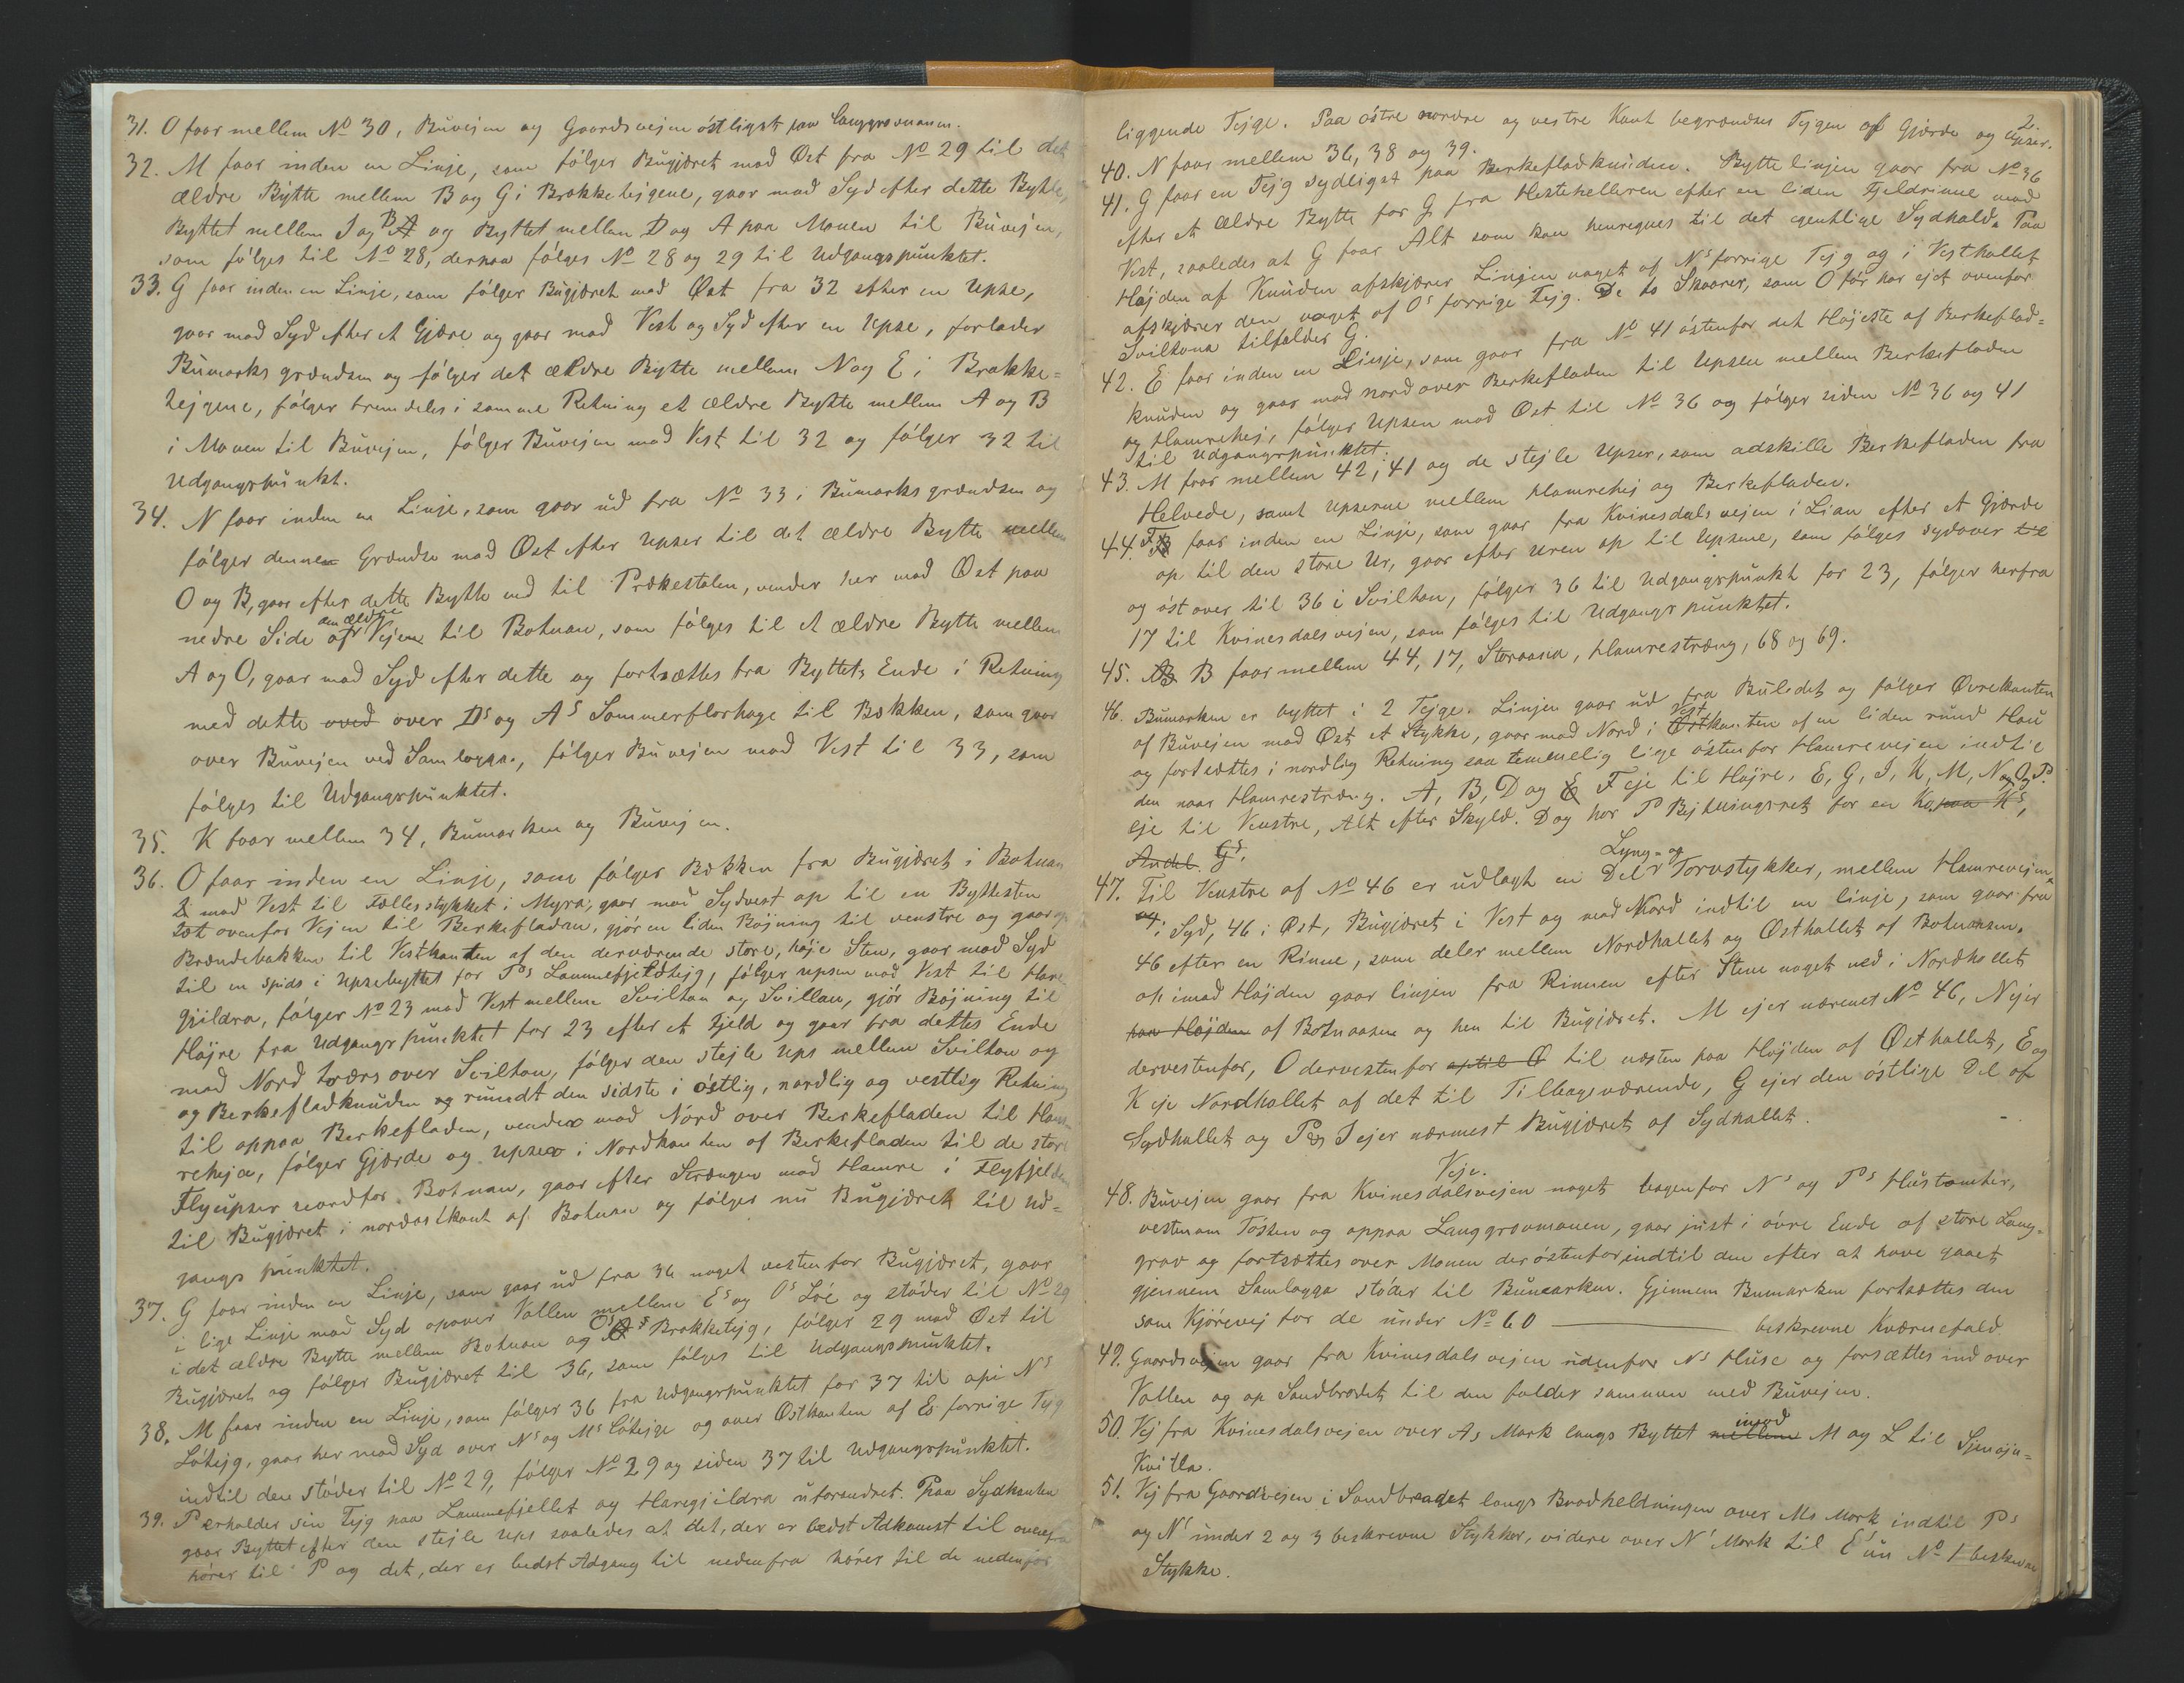 31. O faar mellem No 30, Buvejen og Gaardsvejen östligst paa Langgrovmonen.
32. M faar inden en Linje, som følger Bugjæret mod Øst fra No 29 til det
ældre Bytte mellem B og G i Brakketejgene, gaar mod Syd efter dette Bytte,
Byttet mellem I og B og Byttet mellem D og A paa Monen til Buvejen,
som følges til No 28, derpaa følges No 28 og 29 til Udgangspunktet.
33. G faar inden en Linje, som følger Bugjæret mod Øst fra 32 efter en Upse,
gaar mod Syd efter et Gjære og gaar mod Vest og Syd efter en Upse, forlader
Bumarks grændsen og følger det ældre Bytte mellem N og E i Brakke=
tejgene, følger fremdeles i samme Retning et ældre Bytte mellem A og B
i Monen til Buvejen, følger Buvejen mod Vest til 32 og følger 32 til
Udgangspunkt.
34. N faar inden en Linje, som gaar ud fra No 33 i Bumarks grændsen og
følger denne Grændse mod Øst efter Upser til det ældre Bytte mellem
O og B, gaar efter dette Bytte ned til Prækestolen, vender her mod Øst paa
nedre Side af den ældre Vejen til Botnan, som følges til et ældre Bytte mellem
A og O, gaar mod Syd efter dette og fortsættes fra Byttets Ende i Retning
med dette oved over Ds og As Sommerflorhage til Bækken, som gaar
over Buvejen ved Samlogga, følger Buvejen mod Vest til 33, som
følges til Udgangspunktet.
35. K faar mellem 34, Bumarken og Buvejen.
36. O faar inden en Linje, som følger Bækken fra Bugjæret i Botnan
mod Vest til Fællesstykket i Myra, gaar mod Sydvest op til en Byttesten
tæt ovenfor Vejen til Berkefladen, gjör en liden Böjning til venstre og gaar op
Brændebakken til Vestkanten af den derværende store, höje Sten, gaar mod Syd
til en spids i Upsebyttet for Ps Lammefjeldtejg, følger upsen mod Vest til Hare
gjildra, følger No 23 mod Vest mellem Sviltan og Svillan, gjör Böjning til
Höjre fra Udgangspunktet for 23 efter et Fjeld og gaar fra dettes Ende
mod Nord tværs over Sviltan, følger den stejle Ups mellem Sviltan og
og Berkefladknuden og rundt den sidste i östlig, nordlig og vestlig Retning
til oppaa Berkefladen, vender mod Nord over Berkefladen til Ham-
reheja, følger Gjærde og upser i Nordkanten af Berkefladen til de store
Flyupser nordfor Botnan, gaar efter Strængen mod Hamre i Flyfjeldet
til Bugjæret i nordostkant af Botnan og følger nu Bugjæret til Ud=
gangs punktet.
37. G faar inden en Linje, som gaar ud fra 36 noget vestenfor Bugjæret, gaar
i lige Linje mod Syd opover Vollen mellem Es og Os Löe og stöder til No 29
i det ældre Bytte mellem Botnan og Os Brakketejg, følger 29 mod Øst til
Bugjæret og følger Bugjæret til 36, som følges til Udgangspunktet.
38. M faar inden en Linje, som følger 36 fra Udgangspunktet for 37 til opi Ns
Løtejg, gaar her mod Syd over Ns og Ms Løtejge og over Østkanten af Es forrige Tejg
indtil den stöder til No 29, følger No 29 og siden 37 til Udgangspunktet.
39. P erholder sin Tejg paa Lammefjellet og Haregjildra uforandret. Paa Sydkanten
gaar Byttet efter den stejle Ups saaledes at det, der er bedst Adkomst til ovenfra
hörer til P og det, der er bedst Adgang til nedenfra hörer til de nedenfor
liggende Tejge. Paa östre nordre og vestre Kant begrændses Tejgen af Gjærde og Upser.
40. N faar mellem 36, 38 og 39.
41. G faar en Tejg sydligst paa Berkefladknuden. Byttelinjen gaar fra No 36
efter et ældre Bytte for G fra Hestehelleren efter en liden Fjeldrinne mod
Vest, saaledes at G faar Alt som kan henregnes til det egentlige Sydhald. Paa
Höjden af Knuden afskjærer Linjen noget af Ns forrige Tejg og i Vesthallet
afskjærer den noget af Os forrige Tejg. De to Skaarer, som O för har ejet ovenfor
Sviltona tilfalder G.
42. E faar inden en Linje, som gaar fra No 41 östenfor det Höjeste af Berkeflad=
knuden og gaar mod nord over Berkefladen til Upsen mellem Berkefladen
og Hamrehej, følger Upsen mod Øst til No 36 og følger siden No 36 og 41
til Udgangspunktet.
43. M faar mellem 42, 41 og de stejle Upser, som adskille Berkefladen fra
Helvede, samt Upserne mellem Hamrehej og Berkefladen.
44. F faar inden en Linje, som gaar fra Kvinesdalsvejen i Lian efter et Gjærde
op til den store Ur, gaar efter Uren op til Upsene, som følges sydover til
og östover til 36 i Sviltan, følger 36 til Udgangspunkt for 23, følger herfra
17 til Kvinesdalsvejen, som følges til Udgangspunktet.
45. B faar mellem 44, 17, Storaana, Hamrestræng, 68 og 69.
46. Bumarken er byttet i 2 Tejge. Linjen gaar ud fra Buledet og følger Øvrekanten
af Buvejen mod Øst et Stykke, gaar mod Nord i Vestkanten af en liden rund Hau
og fortsættes i nordlig Retning saa temmelig lige östenfor Hamrevejen indtil
den naar Hamrestræng. A, B, D og F eje til Højre, E, G, I, K, M, N, O og P
eje til Venstre, Alt efter Skyld. Dog har P Bejtningsret for en Ko paa Ks,
Andel Gs.
47. Til Venstre af No 46 er udlagt en Del Lyng- og Torvstykker, mellem Hamrevejen
i Syd, 46 i Øst, Bugjæret i Vest og mod Nord indtil en linje, som gaar fra
46 efter en Rinne, som deler mellem Nordhallet og Østhallet af Botnaasen.
op imod Höjden gaar linjen fra Rinnen efter Stene noget ned i Nordhallet
paa Höjden af Botnaasen og hen til Bugjæret. M ejer nærmest No 46, N ejer
dervestenfor, O dervestenfor optil O til næsten paa Höjden af Østhallet, E og
K eje Nordhallet af det til Tilbageværende, G ejer den östlige Del af
Sydhallet og P og I ejer nærmest Bugjæret af Sydhallet.
Veje.
48. Buvejen gaar fra Kvinesdalsvejen noget bagenfor Ns og Ps Hustomter,
vestenom Tosten og oppaa Langgrovmonen, gaar just i övre Ende af store Lang-
grov og fortsættes over Monen der östenfor, indtil den efter at have gaaet
gjennem Samlogga stöder til Bumarken. Gjennem Bumarken fortsættes den
som Kjörevej for de under No 60 ——— beskrevne Kværnefald.
49. Gaardsvejen gaar fra Kvinesdalsvejen udenfor Ns Huse og forsættes ind over
Vollen og op Sandbrodet til den falder sammen med Buvejen.
50. Vej fra Kvinesdalsvejen over As Mark langs Byttet mellem imod M og L til
Kvitla.
51. Vej fra Gaardvejen i Sandbraadet langs Bradheldningen over Ms Mark indtil Ps
og Ns under 2 og 3 beskrevne Stykker, videre over Ns Mark til Es un No 1 beskrevne
Stykke.